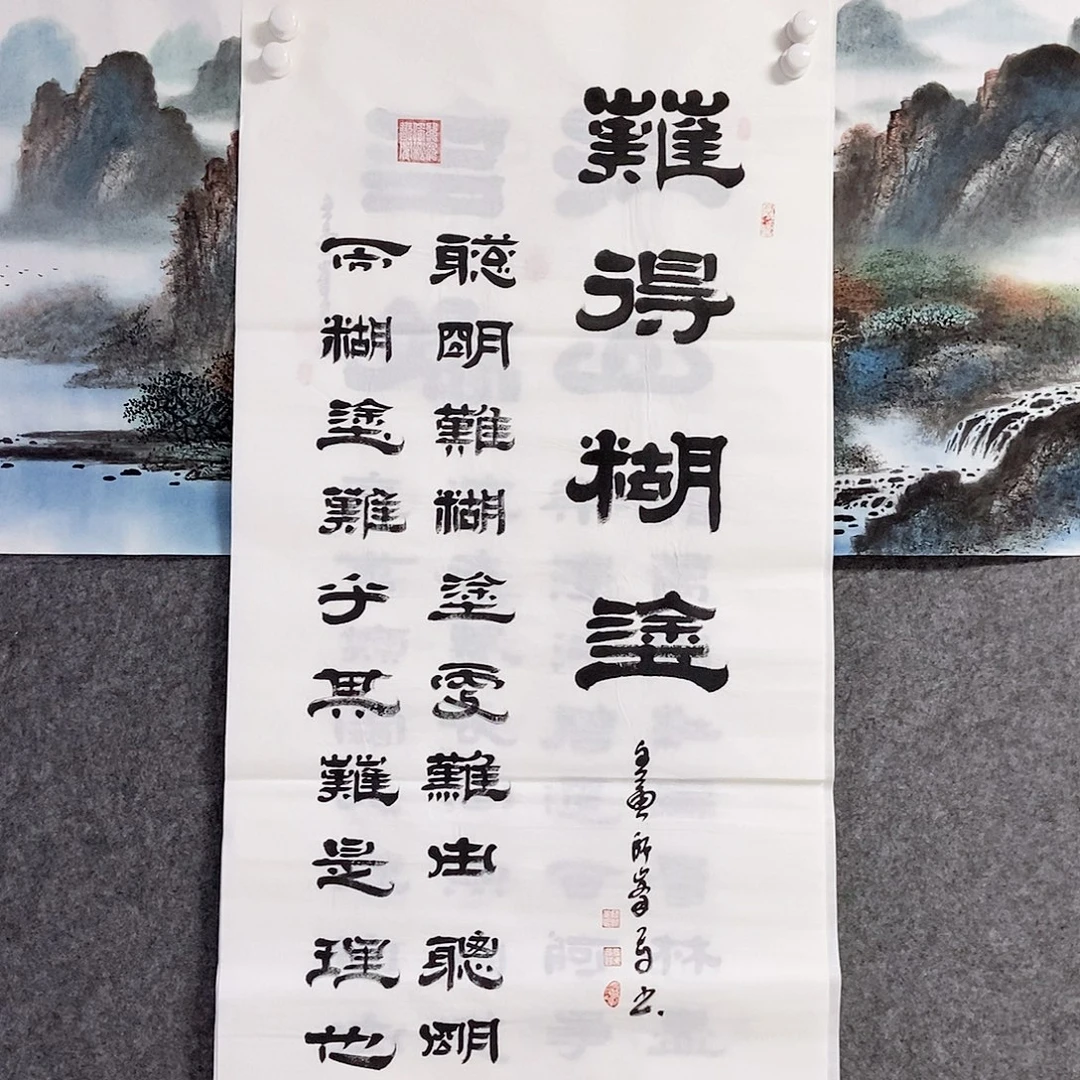 難得糊塗
聰明難糊塗更難由聰明
而糊塗難乎其難是理也